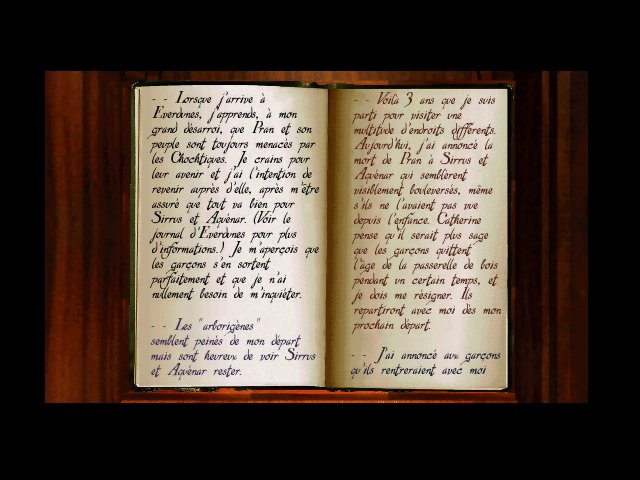 - - Lorsque j'arrive à
Everdunes, j'apprends, à mon
grand désarroi, que Pran et son
peuple sont toujours menacés par
les Chochtiques. Je crains pour
leur avenir et j'ai l'intention de
revenir auprès d'elle, après m'être
assuré que tout va bien pour
Sirrus et Aquénar. (Voir le
journal d'Everdunes pour plus
d'informations.) Je m'aperçois que
les garçons s'en sortent
parfaitement et que je n'ai
nullement besoin de m'inquiéter.
- - Les "arborigènes"
semblent peinés de mon départ
mais sont heureux de voir Sirrus
et Aquénar rester.
- - Voilà 3 ans que je suis
parti pour visiter une
multitude d'endroits différents.
Aujourd'hui, j'ai annoncé la
mort de Pran à Sirrus et
Aquénar qui semblèrent
visiblement bouleversés, même
s'ils ne l'avaient pas vue
depuis l'enfance. Catherine
pense qu'il serait plus sage
que les garçons quittent
l'âge de la passerelle de bois
pendant un certain temps, et
je dois me résigner. Ils
repartiront avec moi dès mon
prochain départ.
- - J'ai annoncé aux garçons
qu'ils rentreraient avec moi